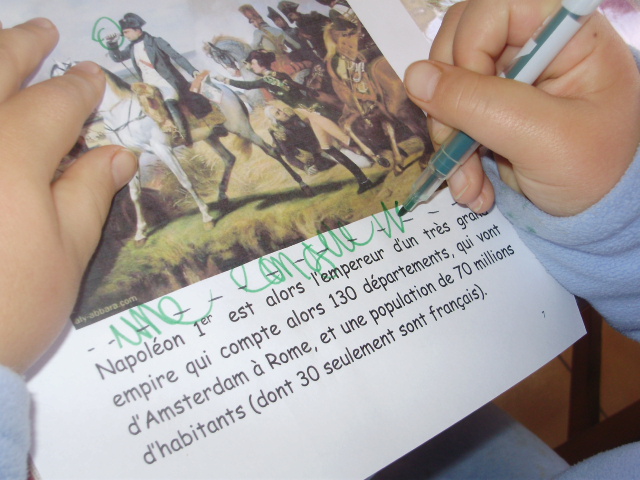 aly-abbara.com
une longue v
Napoléon 1er est alors l'empereur d'un très grand
empire qui compte alors 130 départements, qui vont
d'Amsterdam à Rome, et une population de 70 millions
d'habitants (dont 30 seulement sont français).
7